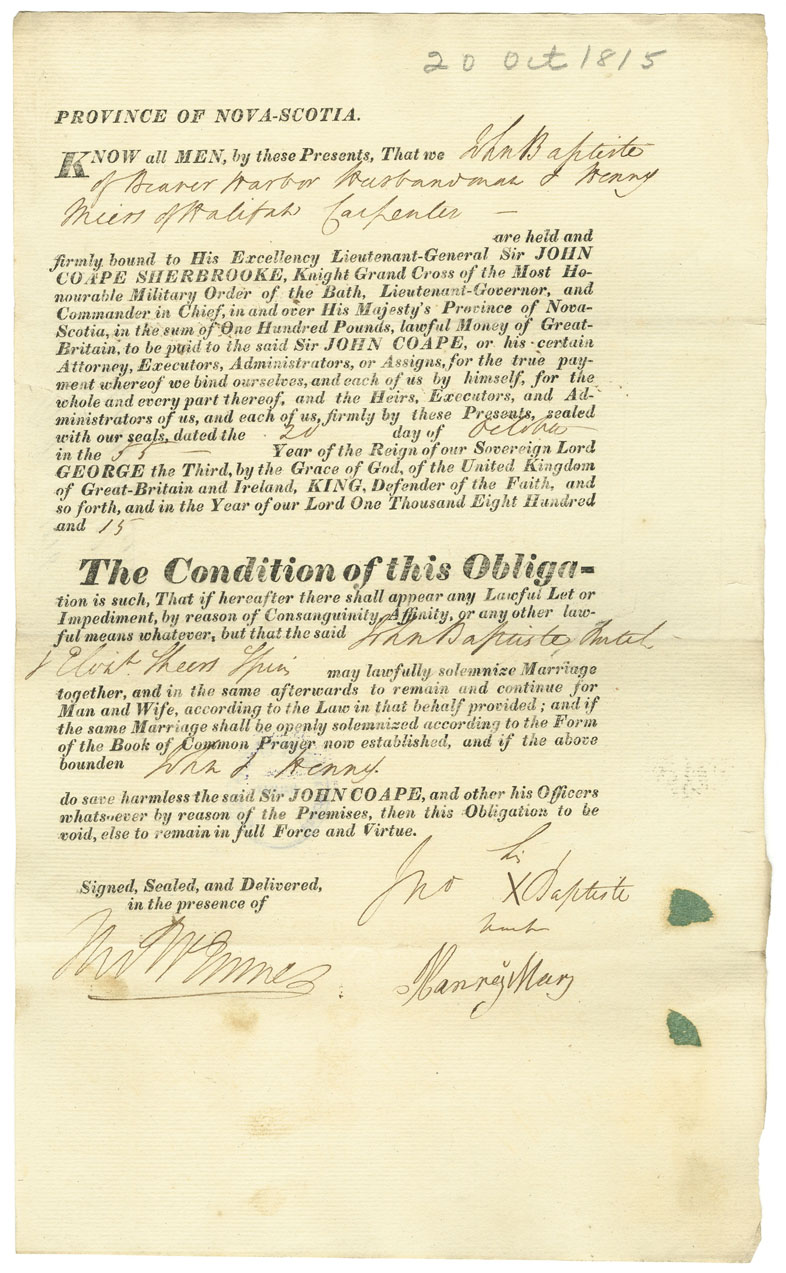 20 Oct 1815
PROVINCE OF NOVA-SCOTIA.
KNOW all MEN, by these Presents, That we John Baptiste
of Beaver Harbor Husbandman & Henry
Miers of Halifax Carpenter —
are held and
firmly bound to His Excellency Lieutenant-General Sir JOHN
COAPE SHERBROOKE, Knight Grand Cross of the Most Ho-
nourable Military Order of the Bath, Lieutenant-Governor, and
Commander in Chief, in and over His Majesty's Province of Nova-
Scotia, in the sum of One Hundred Pounds, lawful Money of Great-
Britain, to be paid to the said Sir JOHN COAPE, or his certain
Attorney, Executors, Administrators, or Assigns, for the true pay-
ment whereof we bind ourselves, and each of us by himself, for the
whole and every part thereof, and the Heirs, Executors, and Ad-
ministrators of us, and each of us, firmly by these Presents, sealed
with our seals, dated the 20 day of October
in the 55 — Year of the Reign of our Sovereign Lord
GEORGE the Third, by the Grace of God, of the United Kingdom
of Great-Britain and Ireland, KING, Defender of the Faith, and
so forth, and in the Year of our Lord One Thousand Eight Hundred
and 15
The Condition of this Obliga-
tion is such, That if hereafter there shall appear any Lawful Let or
Impediment, by reason of Consanguinity, Affinity, or any other law-
ful means whatever, but that the said John Baptiste
& Elizt. Sheers Spin may lawfully solemnize Marriage
together, and in the same afterwards to remain and continue for
Man and Wife, according to the Law in that behalf provided; and if
the same Marriage shall be openly solemnized according to the Form
of the Book of Common Prayer now established, and if the above
bounden John & Henry.
do save harmless the said Sir JOHN COAPE, and other his Officers
whatsoever by reason of the Premises, then this Obligation to be
void, else to remain in full Force and Virtue.
Signed, Sealed, and Delivered,
in the presence of
his
Jno X Baptiste
mark